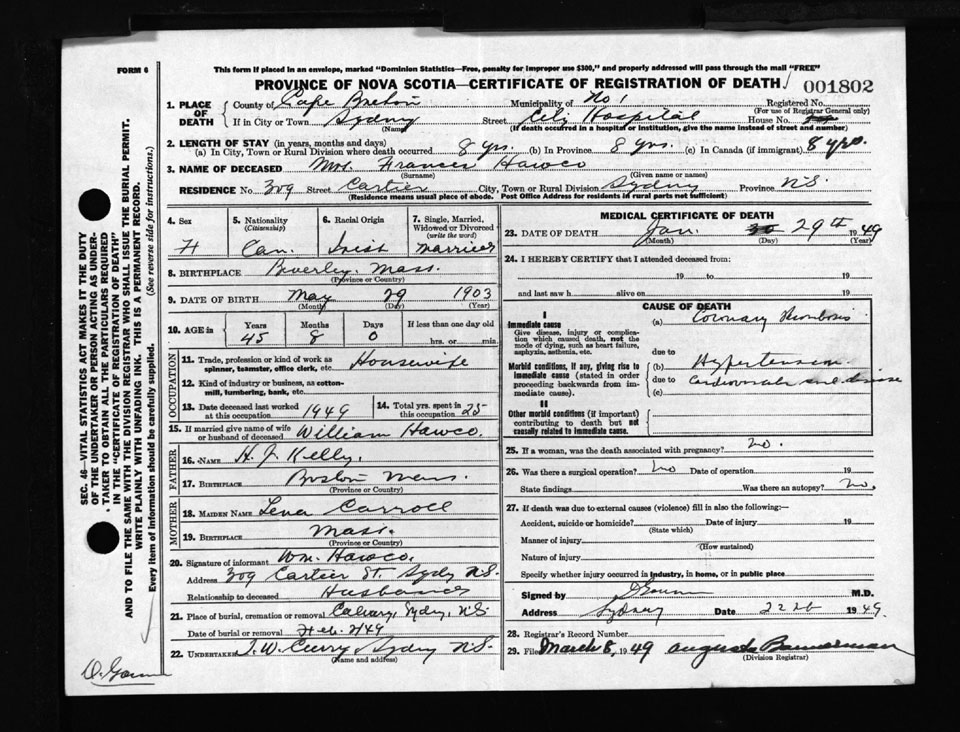 FORM 6
This form if placed in an envelope, marked "Dominion Statistics—Free, penalty for improper use $300," and properly addressed will pass through the mail "FREE"
PROVINCE OF NOVA SCOTIA—CERTIFICATE OF REGISTRATION OF DEATH
001802
1. PLACE OF DEATH
County of Cape Breton Municipality of No 1 Registered No.
(For use of Registrar General only)
If in City or Town Sydney Street City Hospital House No.
(Name) (If death occurred in a hospital or institution, give the name instead of street and number)
2. LENGTH OF STAY (in years, months and days)
(a) In City, Town or Rural Division where death occurred 8 yrs. (b) In Province 8 yrs. (c) In Canada (if immigrant) 8 yrs.
3. NAME OF DECEASED Mrs. Frances Hawco
(Surname) (Given name or names)
RESIDENCE No. 309 Street Cartier City, Town or Rural Division Sydney Province N.S.
(Residence means usual place of abode. Post Office Address for residents in rural parts not sufficient)
4. Sex
F
5. Nationality
(Citizenship)
Can.
6. Racial Origin
Irish
7. Single, Married, Widowed or Divorced
(write the word)
Married
8. BIRTHPLACE Beverley, Mass.
(Province or Country)
9. DATE OF BIRTH May 29 1903
(Month) (Day) (Year)
10. AGE in
Years Months Days If less than one day old
45 8 0 hrs. or min.
OCCUPATION
11. Trade, profession or kind of work as spinner, teamster, office clerk, etc. Housewife
12. Kind of industry or business, as cotton-mill, lumbering, bank, etc.
13. Date deceased last worked at this occupation 1949
14. Total yrs. spent in this occupation 25
15. If married give name of wife or husband of deceased William Hawco.
FATHER
16. NAME H. J. Kelly.
17. BIRTHPLACE Boston Mass.
(Province or Country)
MOTHER
18. MAIDEN NAME Lena Carroll
19. BIRTHPLACE Mass.
(Province or Country)
20. Signature of informant Wm. Hawco.
Address 309 Cartier St. Sydy N.S.
Relationship to deceased Husband
21. Place of burial, cremation or removal Calvary, Sydney, N.S.
Date of burial or removal Feb. 1/49
22. UNDERTAKER T. W. Curry Sydney N.S.
(Name and address)
MEDICAL CERTIFICATE OF DEATH
23. DATE OF DEATH Jan. 29th 1949
(Month) (Day) (Year)
24. I HEREBY CERTIFY that I attended deceased from:
19 to 19
and last saw h alive on 19
CAUSE OF DEATH
I
Immediate cause
Give disease, injury or complication which caused death, not the mode of dying, such as heart failure, asphyxia, asthenia, etc.
(a) Coronary thrombosis
due to
Morbid conditions, if any, giving rise to immediate cause (stated in order proceeding backwards from immediate cause).
(b) Hypertension
due to Cardiovascular renal disease
(c)
II
Other morbid conditions (if important) contributing to death but not causally related to immediate cause.
25. If a woman, was the death associated with pregnancy? no.
26. Was there a surgical operation? No Date of operation 19
State findings Was there an autopsy? No.
27. If death was due to external causes (violence) fill in also the following:—
Accident, suicide or homicide? Date of injury 19
(State which)
Manner of injury
(How sustained)
Nature of injury
Specify whether injury occurred in industry, in home, or in public place
Signed by M.D.
Address Sydney Date 1949
28. Registrar's Record Number
29. Filed March 8, 1949 Augusta Bannerman
(Division Registrar)
SEC. 46—VITAL STATISTICS ACT MAKES IT THE DUTY
OF THE UNDERTAKER OR PERSON ACTING AS UNDER-
TAKER TO OBTAIN ALL THE PARTICULARS REQUIRED
IN THE "CERTIFICATE OF REGISTRATION OF DEATH"
AND TO FILE THE SAME WITH THE DIVISION REGISTRAR WHO SHALL ISSUE THE BURIAL PERMIT.
WRITE PLAINLY WITH UNFADING INK. THIS IS A PERMANENT RECORD.
Every item of information should be carefully supplied. (See reverse side for instructions.)